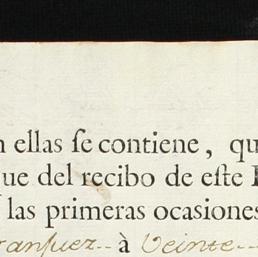 n ellas ſe contiene, qu
ue del recibo de eſte
las primeras ocasiones
ranjuez.. à Veinte